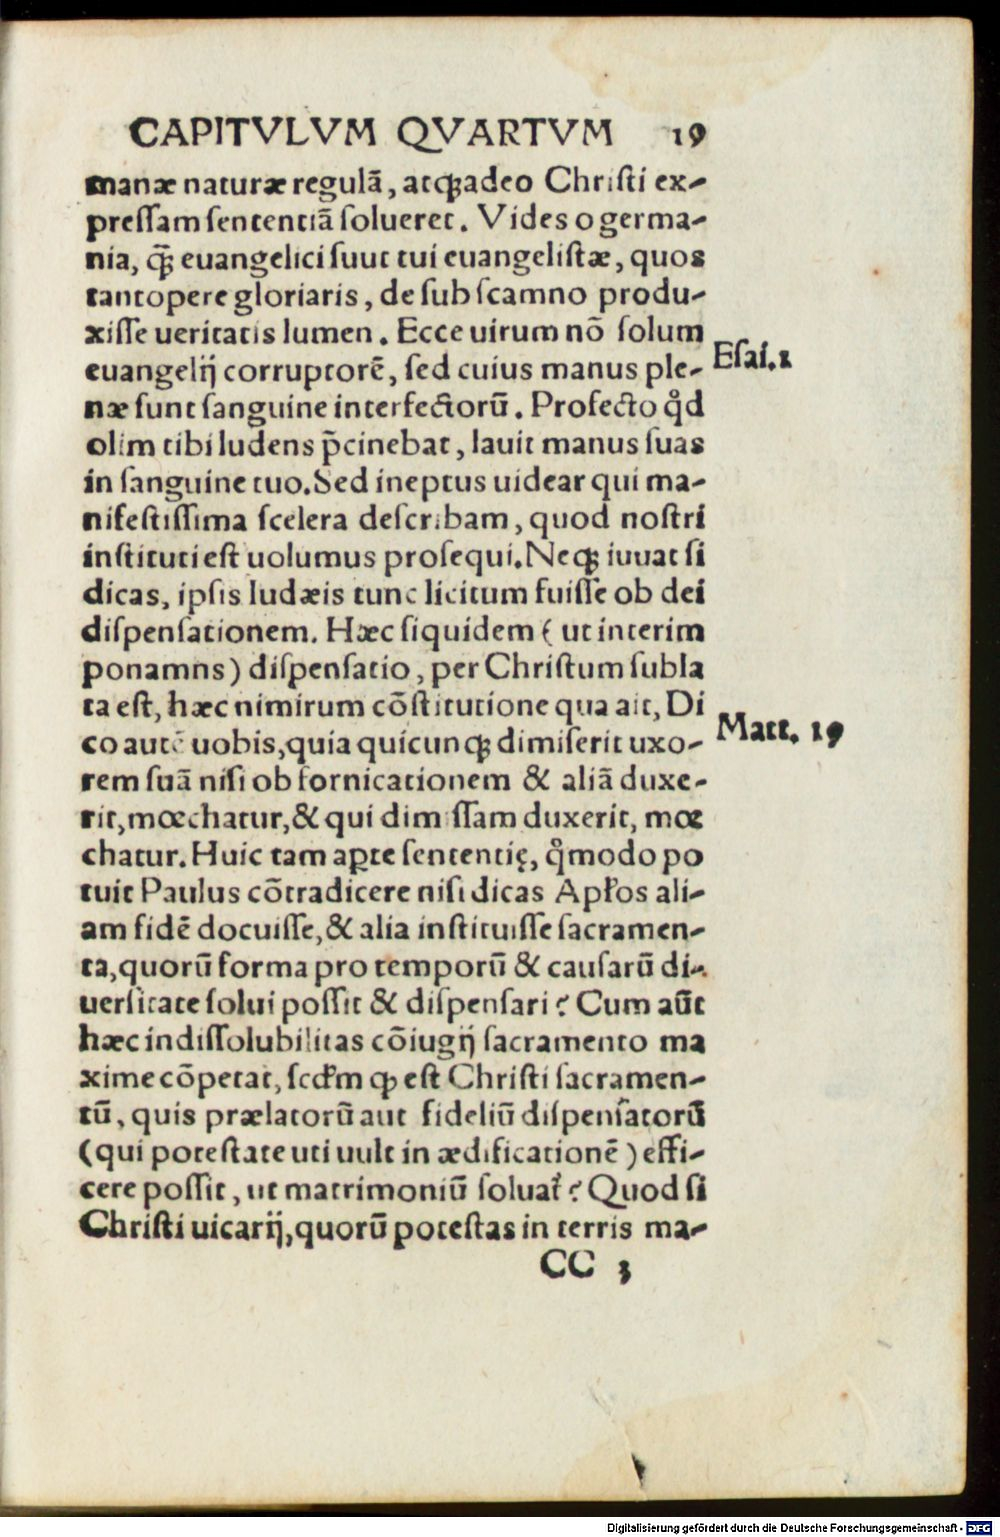 CAPITVLVM QVARTVM 19
manæ naturæ regulā, atqꝫ adeo Christi ex-
pressam sententiā solueret. Vides o germa-
nia, q̄ꝫ euangelici suut tui euangelistæ, quos
tantopere gloriaris, de sub scamno produ-
xisse ueritatis lumen. Ecce uirum nō solum
euangelij corruptorē, sed cuius manus ple-
Esai. 1
næ sunt sanguine interfectorū. Profecto qd̉
olim tibi ludens p̄cinebat, lauit manus suas
in sanguine tuo. Sed ineptus uidear qui ma-
nifestissima scelera describam, quod nostri
instituti est uolumus prosequi. Neqꝫ iuuat si
dicas, ipsis Iudæis tunc licitum fuisse ob dei
dispensationem. Hæc siquidem (ut interim
ponamns) dispensatio, per Christum subla
ta est, hæc nimirum cōstitutione qua ait, Di
Matt. 19
co autē uobis, quia quicunqꝫ dimiserit uxo-
rem suā nisi ob fornicationem & aliā duxe-
rit, mœchatur, & qui dimissam duxerit, mœ
chatur. Huic tam aꝑte sententię, qͦmodo po
tuit Paulus cōtradicere nisi dicas Apłos ali-
am fidē docuisse, & alia instituisse sacramen-
ta, quorū forma pro temporū & causarū di-
uersitate solui possit & dispensari? Cum aūt
hæc indissolubilitas cōiugij sacramento ma
xime cōpetat, scđm ꝙ est Christi sacramen-
tū, quis prælatorū aut fideliū dispensatorū
(qui potestate uti uult in ædificationē) effi-
cere possit, ut matrimoniū soluat᷑? Quod si
Christi uicarij, quorū potestas in terris ma-
CC 3
Digitalisierung gefördert durch die Deutsche Forschungsgemeinschaft - DFG